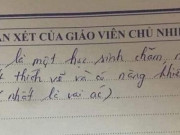 ẬN XÉT CỦA GIÁO VIÊN CHỦ NHI
là một học sinh chăm, n
thích vẽ và có năng khiế
nhất là vai ác)